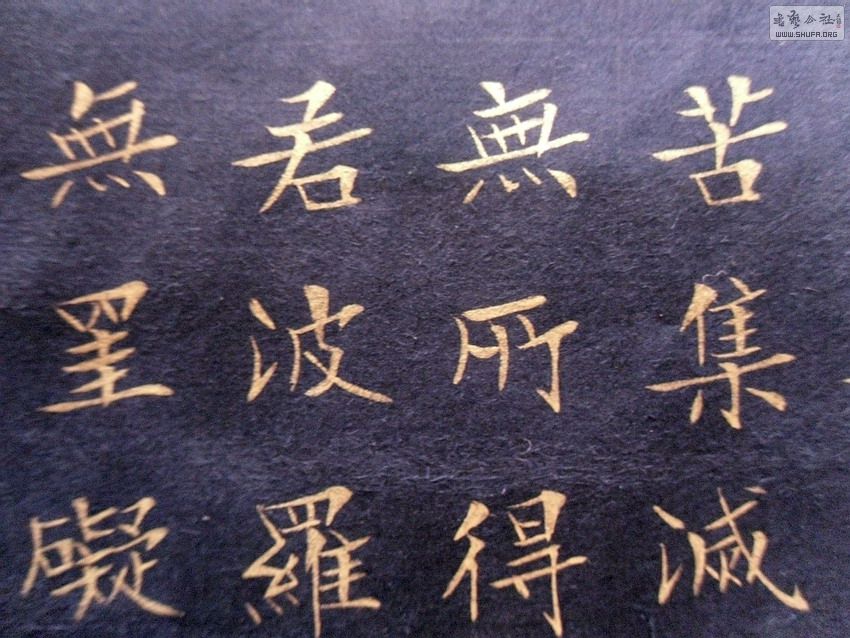 苦集滅
無所得
若波羅
無罣礙
書藝公社
WWW.SHUFA.ORG